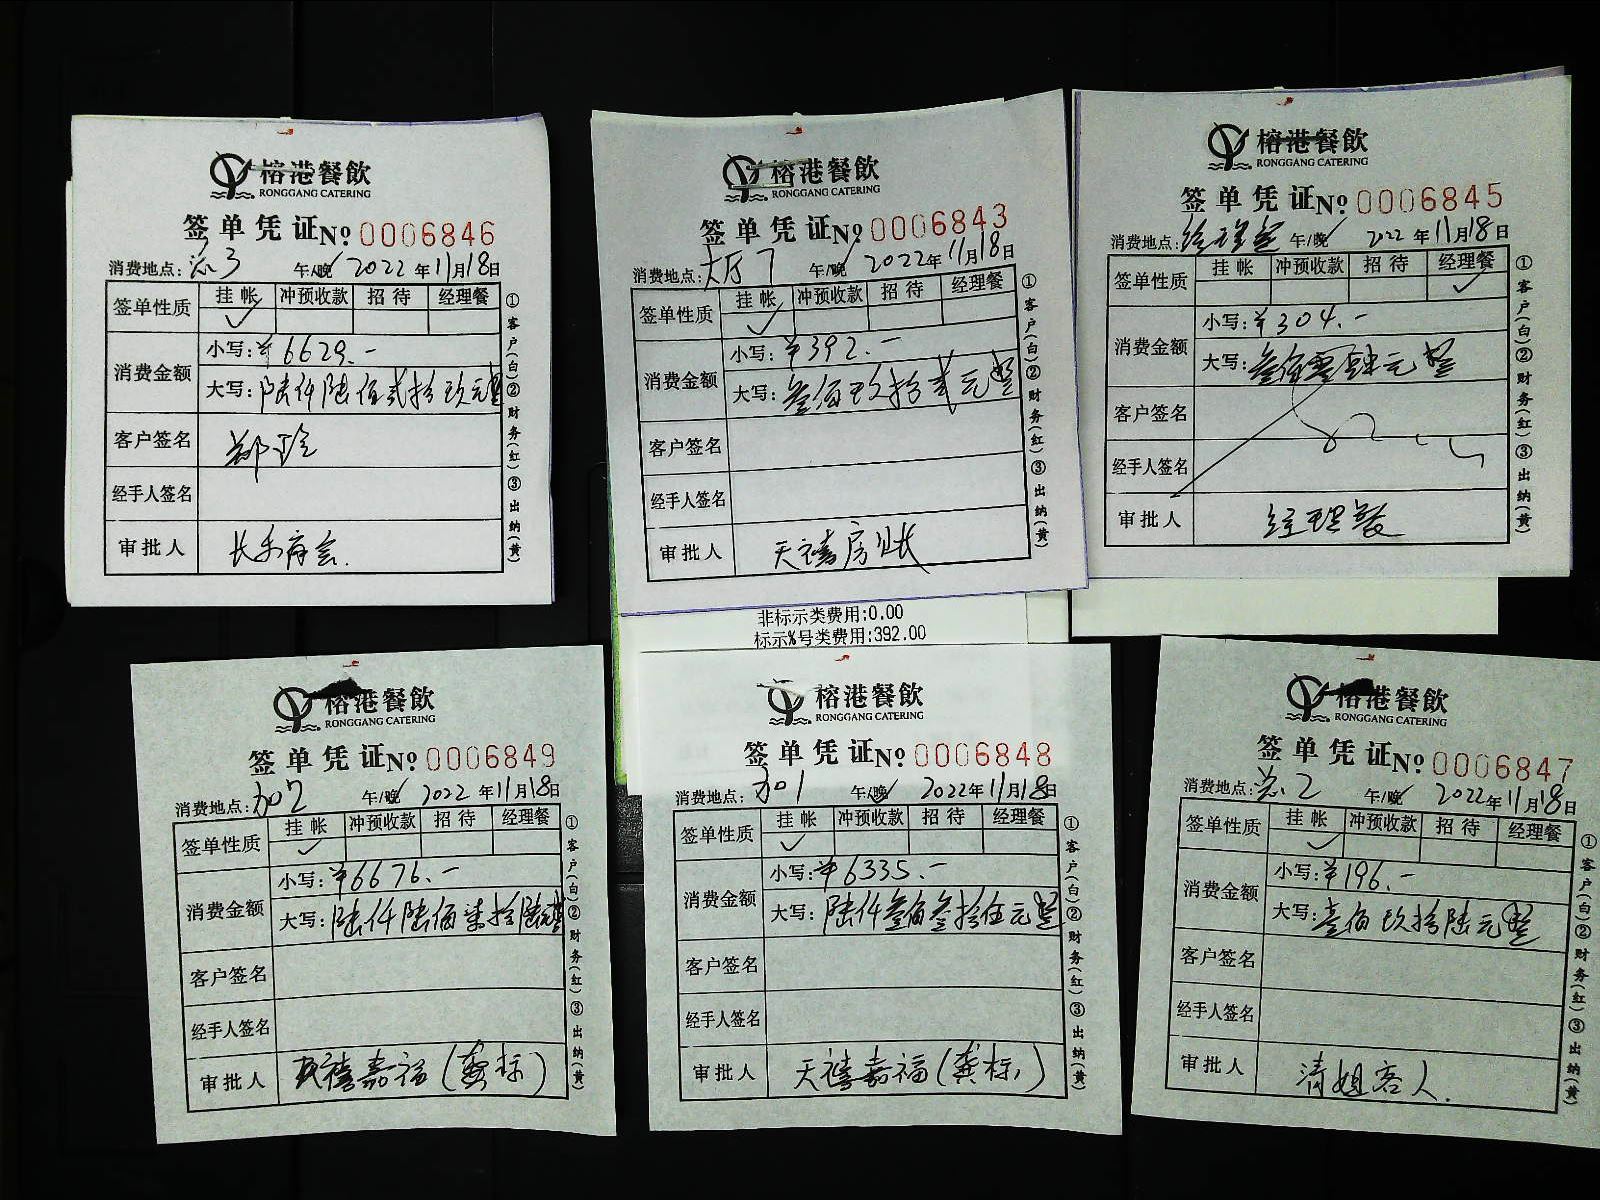 榕港餐飲
RONGGANG CATERING
签单凭证 № 0006846
消费地点: 3 午/晚 2022年11月18日
签单性质 挂帐 冲预收款 招待 经理餐
✓
消费金额 小写:¥6629.-
大写:陆仟陆佰贰拾玖元整
客户签名 郑
经手人签名
审批人 长乐商会.
①客户(白)②财务(红)③出纳(黄)
榕港餐飲
RONGGANG CATERING
签单凭证 № 0006843
消费地点:大厅7 午/晚 2022年11月18日
签单性质 挂帐 冲预收款 招待 经理餐
✓
消费金额 小写:¥392.-
大写:叁佰玖拾贰元整
客户签名
经手人签名
审批人 天禧房账
①客户(白)②财务(红)③出纳(黄)
非标示类费用:0.00
标示%号类费用:392.00
榕港餐飲
RONGGANG CATERING
签单凭证 № 0006845
消费地点:经理室 午/晚 2022年11月18日
签单性质 挂帐 冲预收款 招待 经理餐
✓
消费金额 小写:¥304.-
大写:叁佰零肆元整
客户签名
经手人签名
审批人 经理餐
①客户(白)②财务(红)③出纳(黄)
榕港餐飲
RONGGANG CATERING
签单凭证 № 0006849
消费地点:加2 午/晚 2022年11月18日
签单性质 挂帐 冲预收款 招待 经理餐
✓
消费金额 小写:¥6676.-
大写:陆仟陆佰柒拾陆元整
客户签名
经手人签名
审批人 天禧嘉福(龚标)
①客户(白)②财务(红)③出纳(黄)
榕港餐飲
RONGGANG CATERING
签单凭证 № 0006848
消费地点:加1 午/晚 2022年11月18日
签单性质 挂帐 冲预收款 招待 经理餐
✓
消费金额 小写:¥6335.-
大写:陆仟叁佰叁拾伍元整
客户签名
经手人签名
审批人 天禧嘉福(龚标)
①客户(白)②财务(红)③出纳(黄)
榕港餐飲
RONGGANG CATERING
签单凭证 № 0006847
消费地点: 2 午/晚 2022年11月18日
签单性质 挂帐 冲预收款 招待 经理餐
✓
消费金额 小写:¥196.-
大写:壹佰玖拾陆元整
客户签名
经手人签名
审批人 清姐客人.
①客户(白)②财务(红)③出纳(黄)